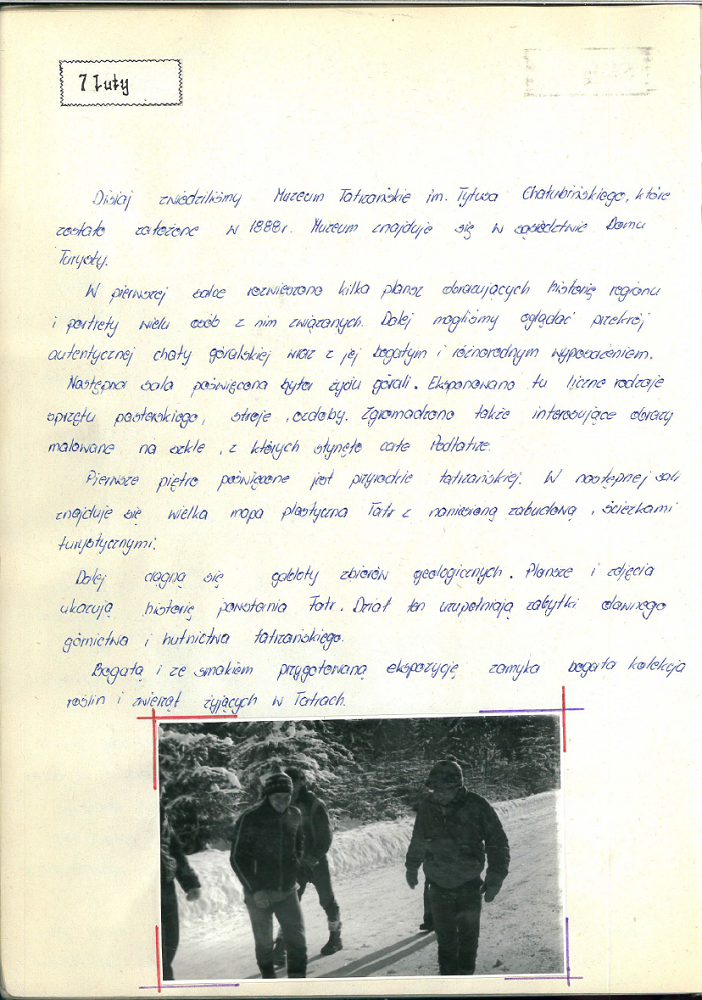 7 Luty
Dzisiaj zwiedziliśmy Muzeum Tatrzańskie im. Tytusa Chałubińskiego, które
zostało założone w 1888r. Muzeum znajduje się w sąsiedztwie Domu
Turysty.
W pierwszej salce rozwieszono kilka plansz obrazujących historię regionu
i portrety wielu osób z nim związanych. Dalej mogliśmy oglądać przekrój
autentycznej chaty góralskiej wraz z jej bogatym i różnorodnym wyposażeniem.
Następna sala poświęcona była życiu górali. Eksponowano tu liczne rodzaje
sprzętu pasterskiego, stroje, ozdoby. Zgromadzono także interesujące obrazy
malowane na szkle, z których słynęło całe Podtatrze.
Pierwsze piętro poświęcone jest przyrodzie tatrzańskiej. W następnej sali
znajduje się wielka mapa plastyczna Tatr z naniesioną zabudową, ścieżkami
turystycznymi.
Dalej ciągną się gabloty zbiorów geologicznych. Plansze i zdjęcia
ukazują historię powstania Tatr. Dział ten uzupełniają zabytki dawnego
górnictwa i hutnictwa tatrzańskiego.
Bogatą i ze smakiem przygotowaną ekspozycję zamyka bogata kolekcja
roślin i zwierząt żyjących w Tatrach.